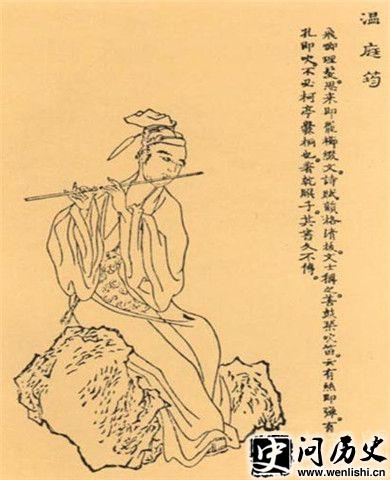 温庭筠
飛卿理髮思来即罷櫛綴文詩賦韻格清拔文士稱之善鼓琴吹笛云有絲即彈有
孔即吹不必柯亭爨桐也著乾子其書久不傳
史 问历史
www.wenlishi.cn